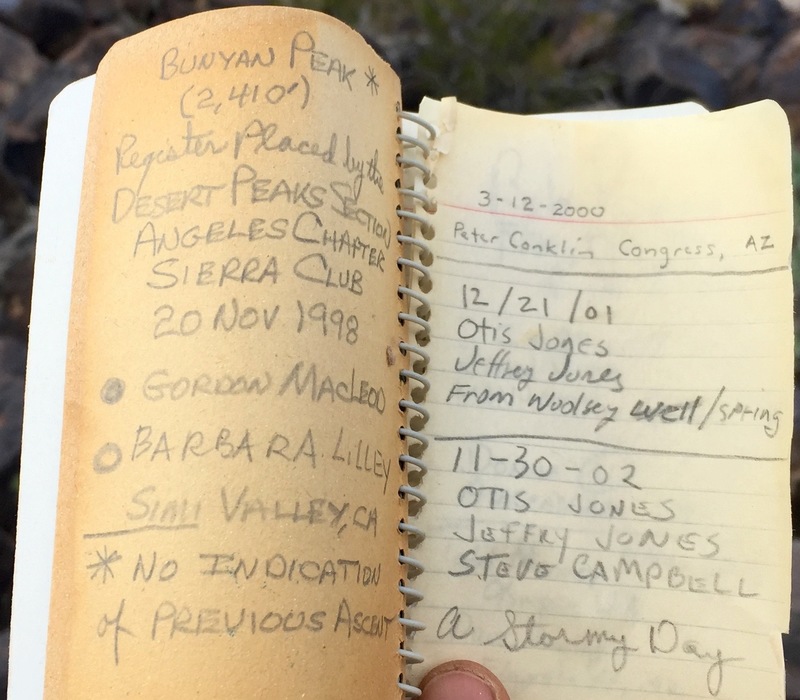 BUNYAN PEAK *
(2,410')
Register Placed by the
DESERT PEAKS SECTION
ANGELES CHAPTER
SIERRA CLUB
20 NOV 1998
GORDON MACLEOD
BARBARA LILLEY
SIMI VALLEY, CA
* NO INDICATION
of PREVIOUS ASCENT
3-12-2000
Peter Conklin Congress, AZ
12/21/01
Otis Jones
Jeffrey Jones
From Woolsey well/spring
11-30-02
OTIS JONES
JEFFRY JONES
STEVE CAMPBELL
A Stormy Day